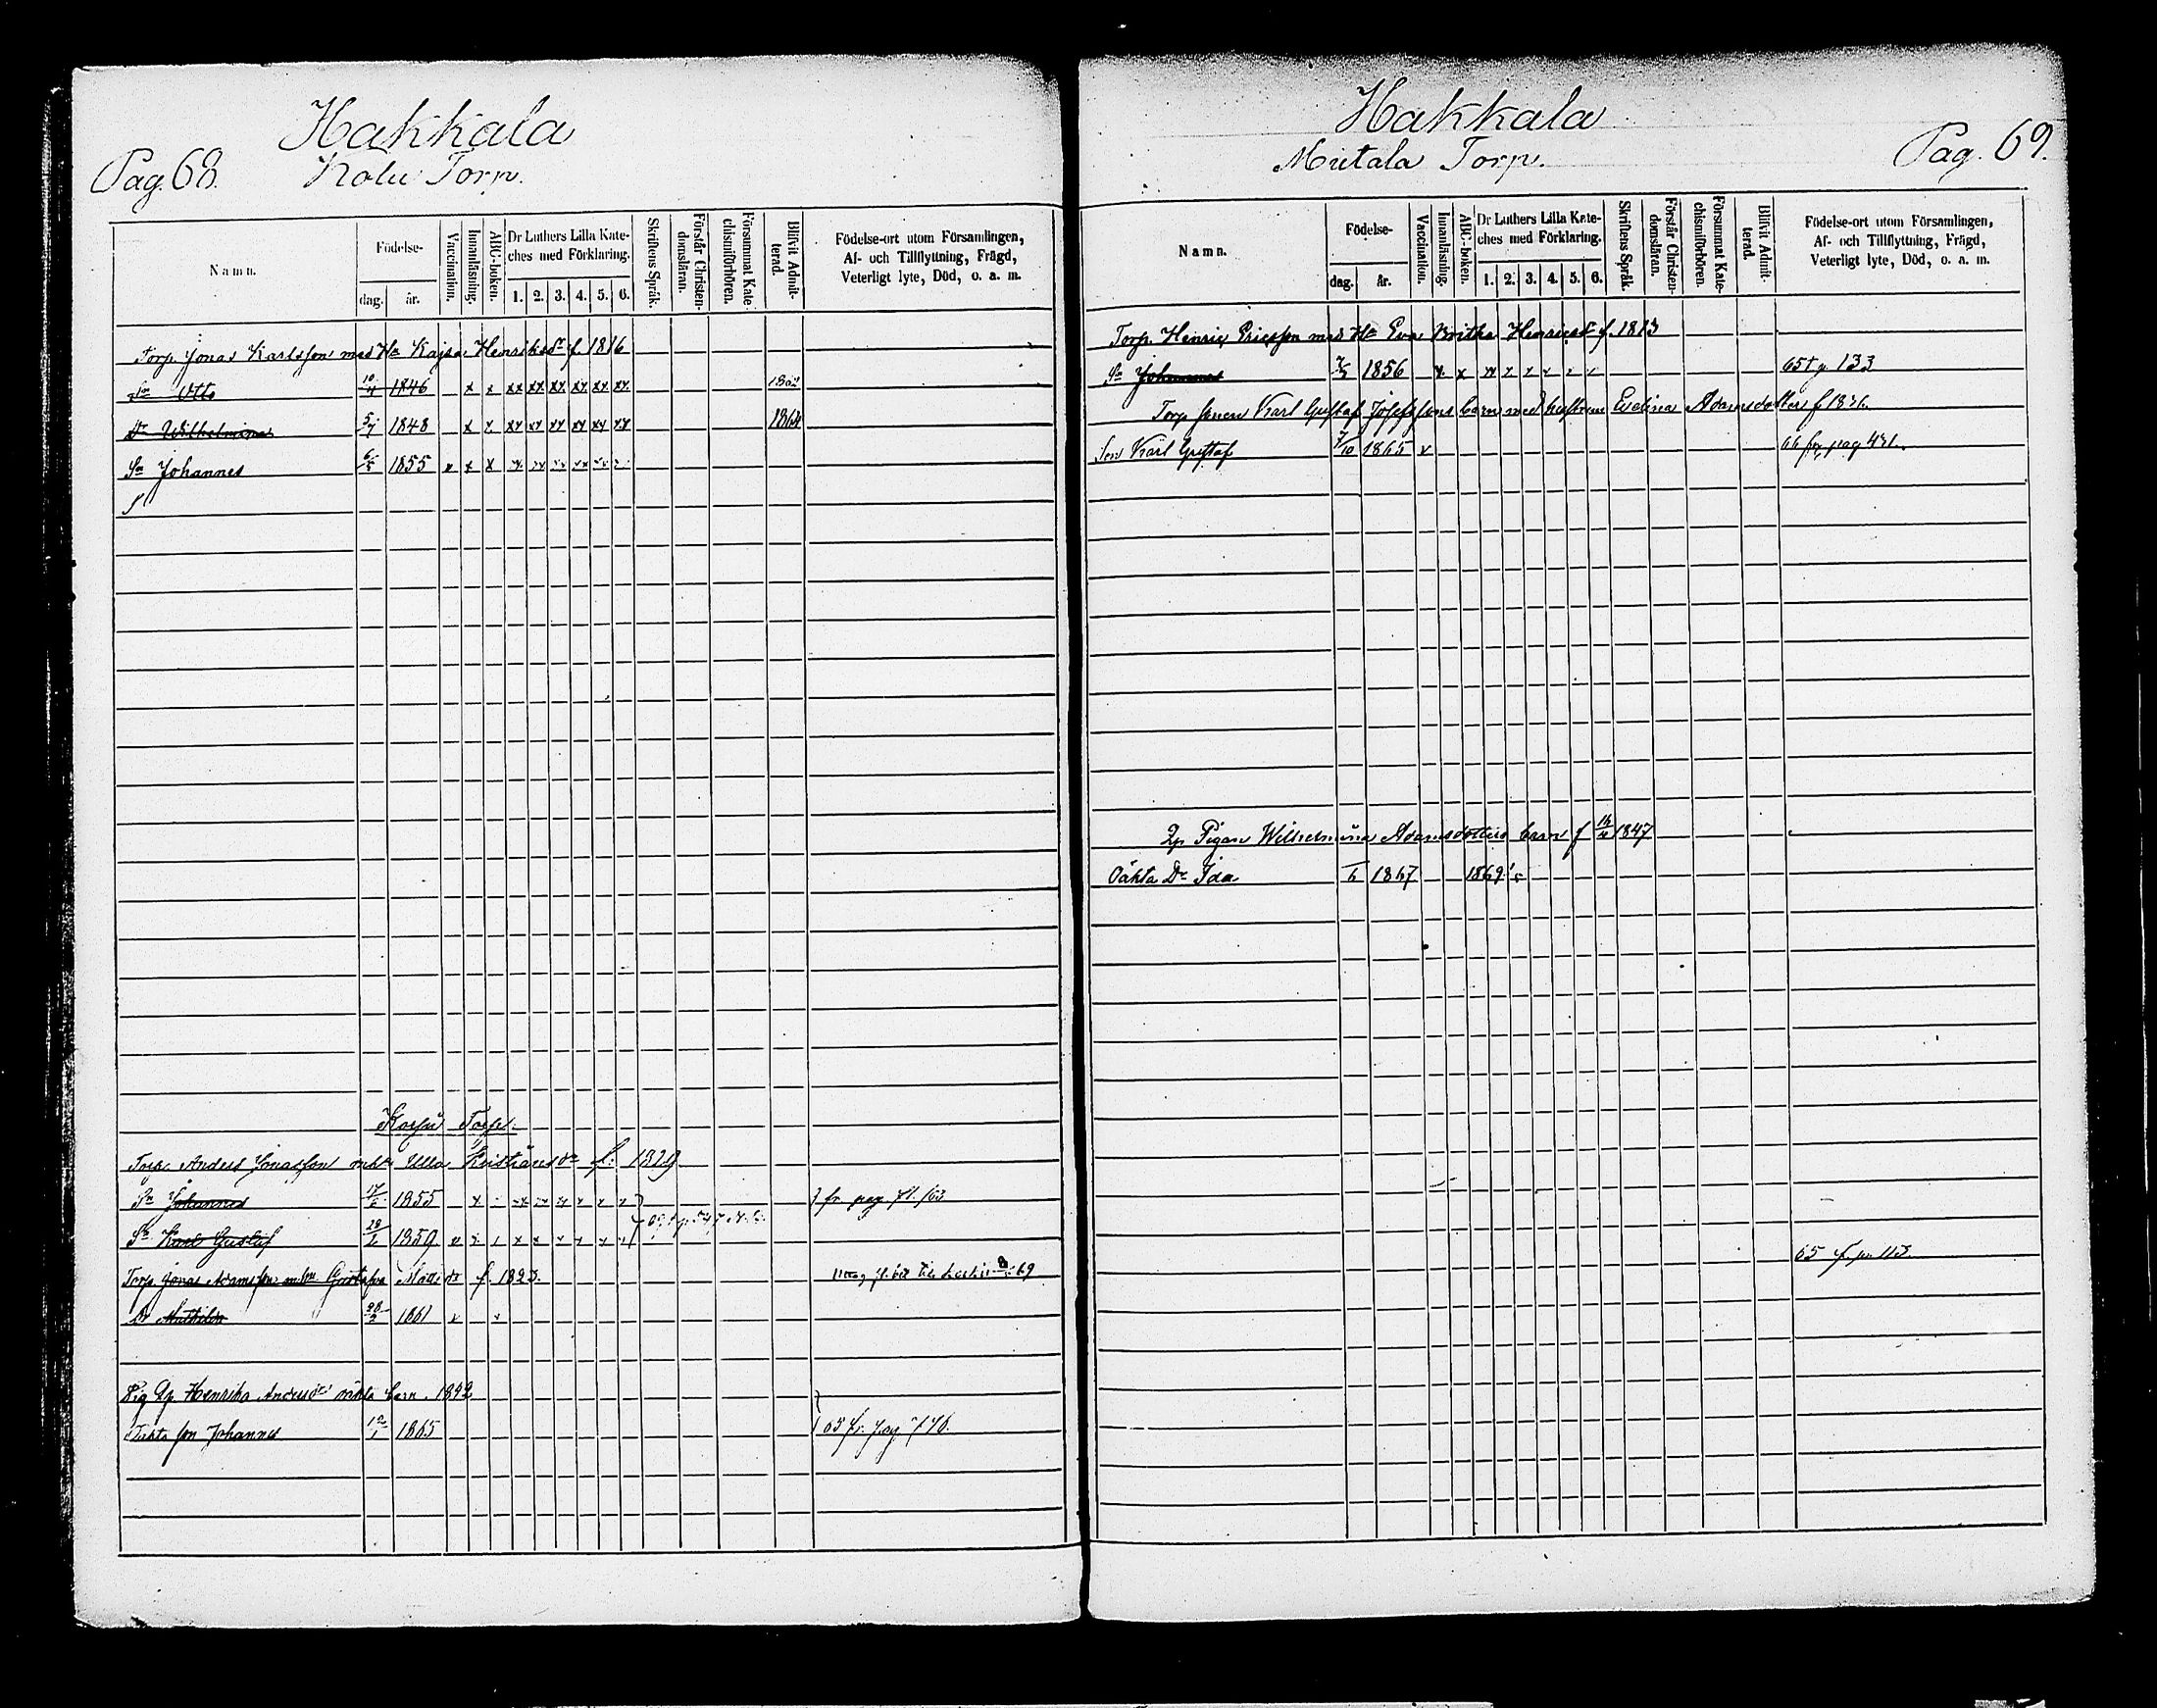 Pag. 68.
Hakkala
Kolu Torp.
Namn.
Födelse-
dag.
år.
Vaccination.
Innanläsning.
ABC-boken.
Dr Luthers Lilla Kate-
ches med Förklaring.
1. 2. 3. 4. 5. 6.
Skriftens Språk.
Förstår Christen-
domsläran.
Försummat Kate-
chismiförhören.
Blifvit Admit-
terad.
Födelse-ort utom Församlingen,
Af- och Tillflyttning, Frägd,
Veterligt lyte, Död, o. a. m.
Torp. Jonas Karlsson med Ha Kajsa Henriksdr f. 1816
Sn Otto 10/4 1846 x x xx xx xx xx xx xx
Dr Wilhelmina 5/7 1848 x x xx xx xx xx xx xx 1864
Sn Johannes 6/5 1855 x x x
Torp.
Torp. Anders Jonasson Ulla Kristiansdr f. 1829
Sn Johannes 17/6 1855
fr. pag
Sn Karl Gustaf 1859
Torp. Jonas Adamsson Gustafva Mattsdr f. 1823.
69
Dr Mathilda 28/2 1861
Pig Henrika Andersdr oäkta barn 1842
Oäkta son Johannes 12/1 1865
65 fr. pag 746.
Hakkala
Mutala Torp.
Pag. 69.
Namn.
Födelse-
dag.
år.
Vaccination.
Innanläsning.
ABC-boken.
Dr Luthers Lilla Kate-
ches med Förklaring.
1. 2. 3. 4. 5. 6.
Skriftens Språk.
Förstår Christen-
domsläran.
Försummat Kate-
chismiförhören.
Blifvit Admit-
terad.
Födelse-ort utom Församlingen,
Af- och Tillflyttning, Frägd,
Veterligt lyte, Död, o. a. m.
Torp. Henric Ericsson med Ha Eva Britha Henricsdr f. 1813
Sn Johannes 1856 65 t p. 133
Torp sonen Karl Gustaf Josefssons barn med hustrun Evelina Adamsdotter f
Son Karl Gustaf 7/10 1865 x 66 fr. pag 431.
Pigan Wilhelmina Adamsdotters barn f 1847
Oäkta Dr Ida 6 1867 1869
65 f. p. 113.